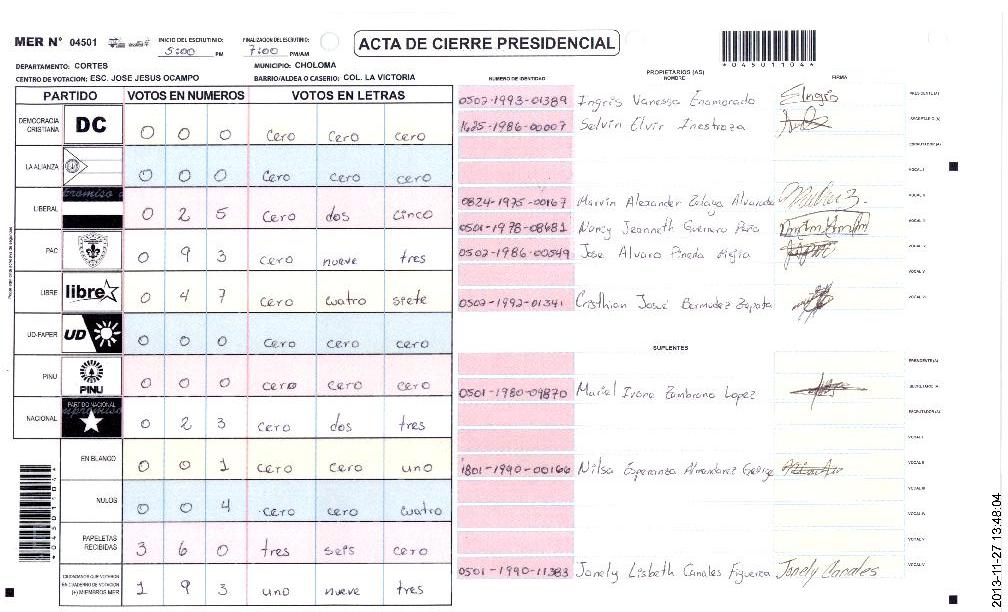 MER Nº 04501 INICIO DEL ESCRUTINIO: 5:00 PM FINALIZACION DEL ESCRUTINIO: 7:00 PM/AM ACTA DE CIERRE PRESIDENCIAL
*04501104*
DEPARTAMENTO: CORTES MUNICIPIO: CHOLOMA
CENTRO DE VOTACION: ESC. JOSE JESUS OCAMPO BARRIO/ALDEA O CASERIO: COL. LA VICTORIA
PARTIDO VOTOS EN NUMEROS VOTOS EN LETRAS
DEMOCRACIA CRISTIANA DC 0 0 0 cero cero cero
LA ALIANZA 0 0 0 cero cero cero
LIBERAL 0 2 5 cero dos cinco
PAC 0 9 3 cero nueve tres
LIBRE libre 0 4 7 cero cuatro siete
UD-FAPER UD 0 0 0 cero cero cero
PINU PINU 0 0 0 cero cero cero
NACIONAL PARTIDO NACIONAL 0 2 3 cero dos tres
EN BLANCO 0 0 1 cero cero uno
NULOS 0 0 4 cero cero cuatro
PAPELETAS RECIBIDAS 3 6 0 tres seis cero
CIUDADANOS QUE VOTARON EN CUADERNO DE VOTACION (+) MIEMBROS MER 1 9 3 uno nueve tres
*04501104*
PROPIETARIOS (AS)
NUMERO DE IDENTIDAD NOMBRE FIRMA
0502-1993-01389 Ingris Vanessa Enamorado PRESIDENTE (A)
1625-1986-00007 Selvin Elvir Inestroza SECRETARIO (A)
ESCRUTADOR (A)
VOCAL I
0824-1975-00167 Marvin Alexander Zelaya Alvarado VOCAL II
0501-1978-08681 Nancy Jeanneth Guerrero VOCAL III
0502-1986-00549 Jose Alvaro Pineda Mejia VOCAL IV
VOCAL V
0502-1992-01341 Cristhian Josué Bermudez Zapata VOCAL VI
SUPLENTES
PRESIDENTE (A)
0501-1980-09870 Mariel Ivone Zambrano Lopez SECRETARIO (A)
ESCRUTADOR (A)
VOCAL I
1801-1990-00166 Nilsa Esperanza George VOCAL II
VOCAL III
VOCAL IV
VOCAL V
0501-1990-11383 Jonely Lisbeth Canales Figueroa Jonely Canales VOCAL VI
2013-11-27 13:48:04